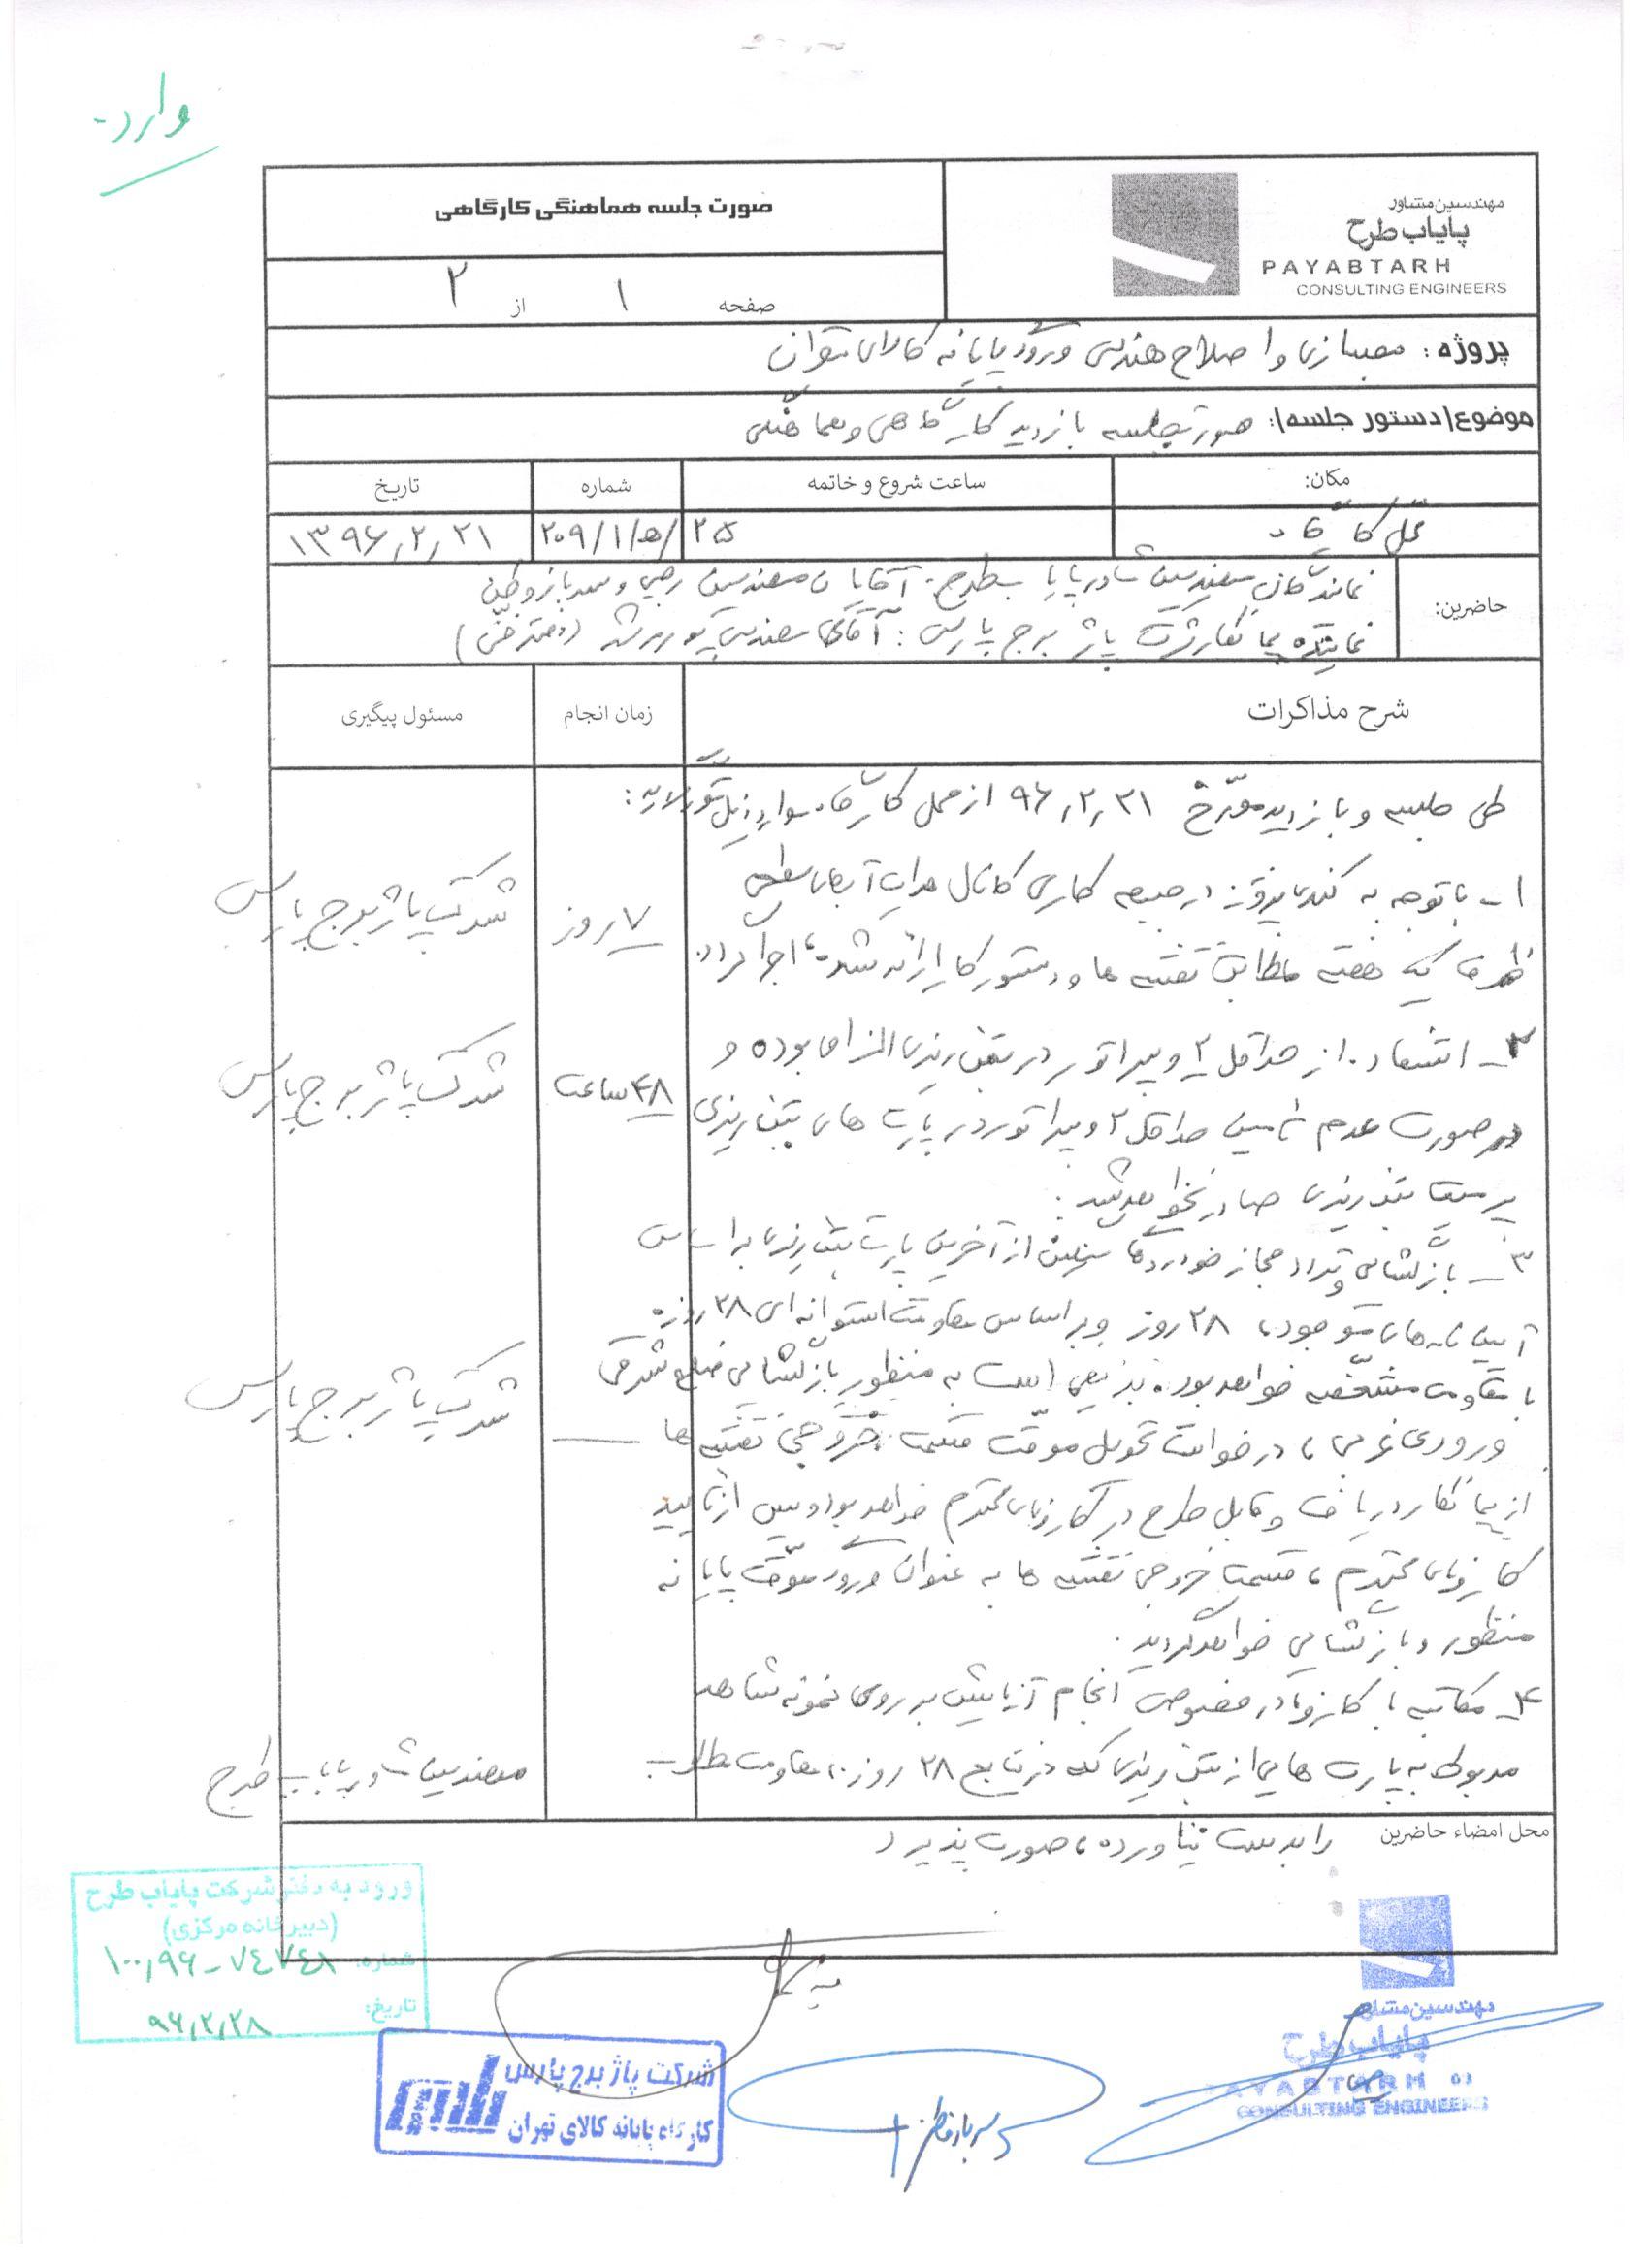 وارد
صورت جلسه هماهنگی کارگاهی
صفحه ۱ از ۲
مهندسین مشاور
پایاب طرح
PAYABTARH
CONSULTING ENGINEERS
پروژه: بهسازی و اصلاح هندسی ورودی پایانه کالای تهران
موضوع(دستور جلسه): صورتجلسه بازدید کارگاهی و هماهنگی
مکان: ساعت شروع و خاتمه شماره تاریخ
محل کارگاه ۲۰۹/۱/ه/۲۵ ۱۳۹۶,۲,۲۱
حاضرین: نمایندگان مهندسین مشاور پایاب طرح: آقایان مهندسین رجبی و سربازوطن
نماینده پیمانکار شرکت پاژ برج پارس: آقای مهندس (دفتر فنی)
شرح مذاکرات زمان انجام مسئول پیگیری
طی جلسه و بازدید مورخ ۹۶,۲,۲۱ از محل کارگاه موارد ذیل مقرر گردید:
۱- با توجه به کندی در جبهه کاری کانال هدایت آبهای سطحی
ظرف یک هفته مطابق نقشه ها و دستور کار ارائه شده، اجرا گردد.
۷ روز شرکت پاژ برج پارس
۲- استفاده از حداقل ۲ ویبراتور در بتن ریزی الزامی بوده و
در صورت عدم تامین حداقل ۲ ویبراتور در پارت های بتن ریزی
پرمیت بتن ریزی صادر نخواهد شد.
۴۸ ساعت شرکت پاژ برج پارس
۳- بازگشایی و تردد مجاز خودروهای سنگین از آخرین پارت بتن ریزی براساس
آیین نامه های موجود، ۲۸ روز و بر اساس مقاومت استوانه ای ۲۸ روزه
با مقاومت مشخصه خواهد بود. بدیهی است به منظور بازگشایی ضلع شرقی
ورودی غربی، درخواست تحویل موقت قسمت خروجی نقشه ها
از پیمانکار دریافت و قابل طرح در کارفرمای محترم خواهد بود و پس از تایید
کارفرمای محترم، قسمت خروجی نقشه ها به عنوان ورود موقت پایانه
منظور و بازگشایی خواهد گردید.
شرکت پاژ برج پارس
۴- مکاتبه با کارفرما در خصوص انجام آزمایش بر روی نمونه شاهد
مربوط به پارت هایی از بتن ریزی که در نتایج ۲۸ روزه، مقاومت مطلوب
مهندسین مشاور پایاب طرح
محل امضاء حاضرین را بدست نیاورده، صورت پذیرد
ورود به دفتر شرکت پایاب طرح
(دبیرخانه مرکزی)
شماره: ۱۰۰,۹۶-۷۴۷۴۸
تاریخ: ۹۶,۲,۲۸
مهندسین مشاور
پایاب طرح
PAYABTARH
CONSULTING ENGINEERS
شرکت پاژ برج پارس
کارگاه پایانه کالای تهران
سربازوطن